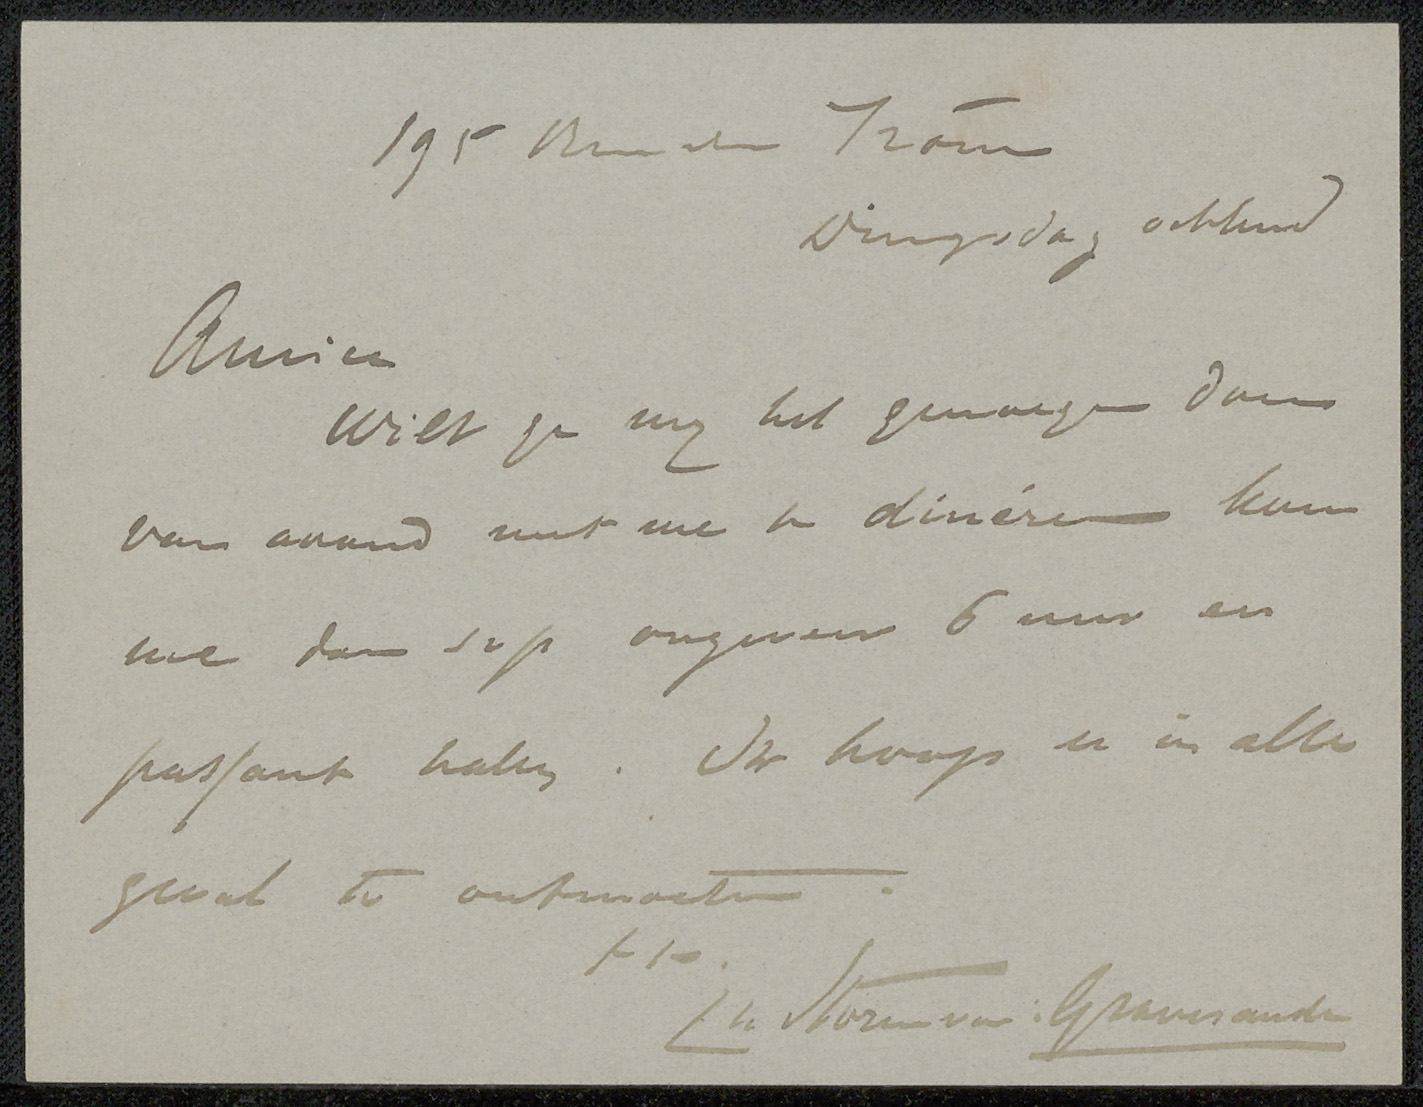 195 Rue du Trône
Dingsdag ochtend
Amice
Wilt ge my het genoegen doen
van avond met me te dinéren kom
me dan svp ongeveer 6 uur en
passant halen. Ik hoop u in alle
geval te ontmoeten.
tt.
Ch Storm van 's Gravesande